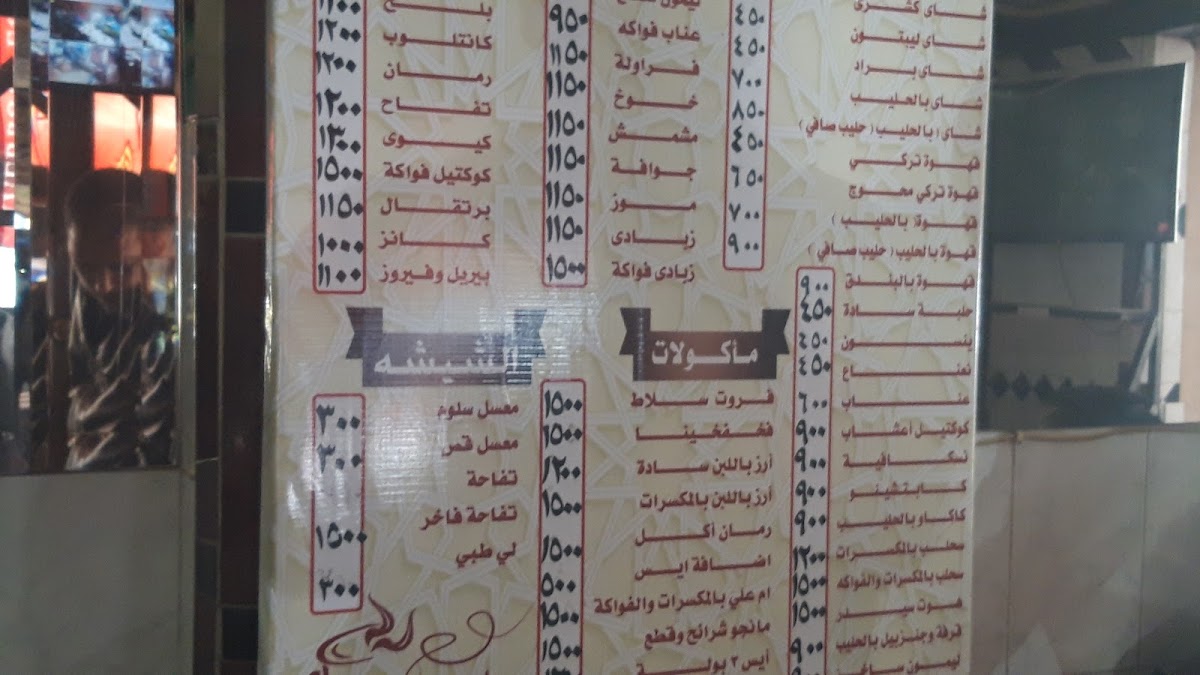 شاى كشرى
شاى ليبتون
شاى براد
شاى بالحليب
شاى ( بالحليب ( حليب صافي )
قهوة تركي
قهوة تركي محوج
قهوة ( بالحليب )
قهوة بالحليب ( حليب صافي )
قهوة بالبندق
حلبة سادة
ينسون
نعناع
عناب
كوكتيل أعشاب
نسكافية
كابتشينو
كاكاو بالحليب
سحلب بالمكسرات
سحلب بالمكسرات والفواكه
هوت سيدر
قرفة وجنزبيل بالحليب
٤٥٠
٤٥٠
٧٠٠
٨٥٠
٤٥٠
٦٥٠
٧٠٠
٩٠٠
٩٠٠
٤٥٠
٤٥٠
٤٥٠
٦٠٠
٩٠٠
٩٠٠
٩٠٠
٩٠٠
١٢٠٠
١٥٠٠
١٥٠٠
٩٠٠
عناب فواكه
فراولة
خوخ
مشمش
جوافة
موز
زبادى
زبادى فواكة
٩٥٠
١١٥٠
١١٥٠
١١٥٠
١١٥٠
١١٥٠
١١٥٠
١٥٠٠
بلح
كانتلوب
رمان
تفاح
كيوى
كوكتيل فواكة
برتقال
كانز
بيريل وفيروز
١١٠٠
١٢٠٠
١٢٠٠
١٢٠٠
١٣٠٠
١٥٠٠
١١٥٠
١٠٠٠
١١٠٠
مأكولات
فروت سلاط
فخفخينا
أرز باللبن سادة
أرز باللبن بالمكسرات
رمان أكل
اضافة ايس
ام علي بالمكسرات والفواكة
مانجو شرائح وقطع
أيس ٢ بولة
١٥٠٠
١٥٠٠
١٢٠٠
١٥٠٠
١٥٠٠
٥٠٠
١٥٠٠
١٥٠٠
الشيشه
معسل سلوم
معسل قص
تفاحة
تفاحة فاخر
لي طبي
٣٠٠
٣٠٠
١٥٠٠
٣٠٠